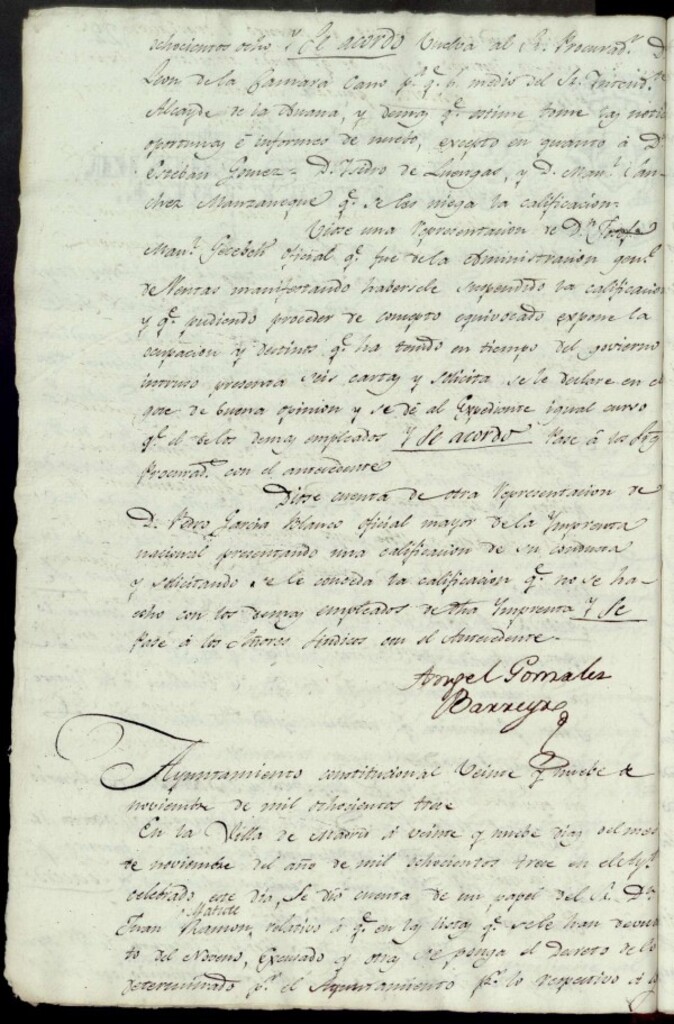 ochocientos ocho Y Se acordo Vuelva al Sr. Procurad.r D.
Leon de la Camara Cano p.a q.e p.r medio del Sr. Intend.te
Alcayde de la Aduana, y demas q.e estime tome las notic
oportunas é informes de nuebo, excepto en quanto á D.n
Esteban Gomez = D. Ysidro de Luengas, y D. Man.l San-
chez Manzaneque q.e se les niega la calificacion.
Viose una representacion de D.n
Man.l oficial q.e fue de la Administracion gen.l
de Rentas manifestando habersele suspendido la calificacion
y q.e pudiendo proceder de concepto equivocado expone la
ocupacion y destinos q.e ha tenido en tiempo del govierno
intruso presenta seis cartas y solicita se le declare en el
goze de buena opinion y se dé al Expediente igual curso
q.e el de los demas empleados Y Se acordo Pase á los Sres
Procurad.s con el antecedente
Diose cuenta de otra representacion de
D. Pedro Garcia Blanco oficial mayor de la Ymprenta
nacional presentando una calificacion de su conducta
y solicitando se le conceda la calificacion q.e no se ha
echo con los demas empleados de dha Ymprenta Y Se
Pase á los Señores Sindicos con el Antecedente.
Angel Gonzalez
Barreyro
Ayuntamiento constitucional Veinte y nuebe de
noviembre de mil ochocientos trece
En la Villa de Madrid á veinte y nuebe dias del mes
de noviembre del año de mil ochocientos trece en el Ay.to
celebrado este dia, Se dió cuenta de un papel del Sr. D.n
Juan Ramon Matute, relativo á q.e en las listas q.e se le han devuel
to del Noveno, Excusado y otras se ponga el decreto de lo
determinado p.r el Ayuntamiento p.r lo respectivo á